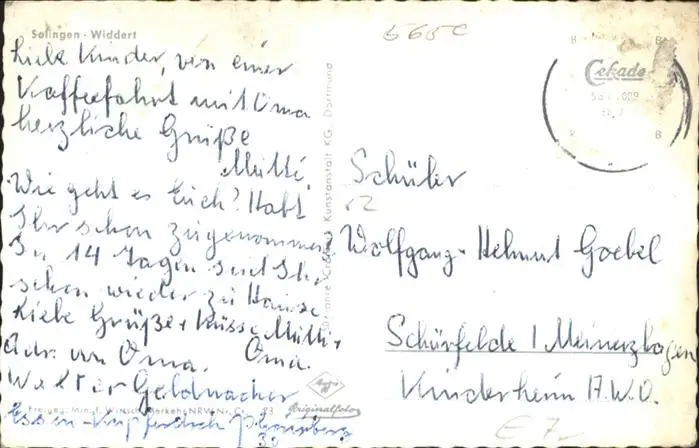 Solingen - Widdert
5650
Liebe Kinder, von einer
Kaffeefahrt mit Oma
herzliche Grüße
Mutti.
Wie geht es Euch? Habt
Ihr schon zugenommen
In 14 Tagen seid Ihr
schon wieder zu Hause.
Liebe Grüße + Küsse Mutti +
Oma.
Adr. von Oma.
Walter Geldmacher
Essen-Kupferdreh
Schüler
Wolfgang-Helmut Goebel
Schürfelde / Meinerzhagen
Kinderheim A.W.O.
Cekade
Kunstanstalt KG. Dortmund
Originalfoto
E 7,-